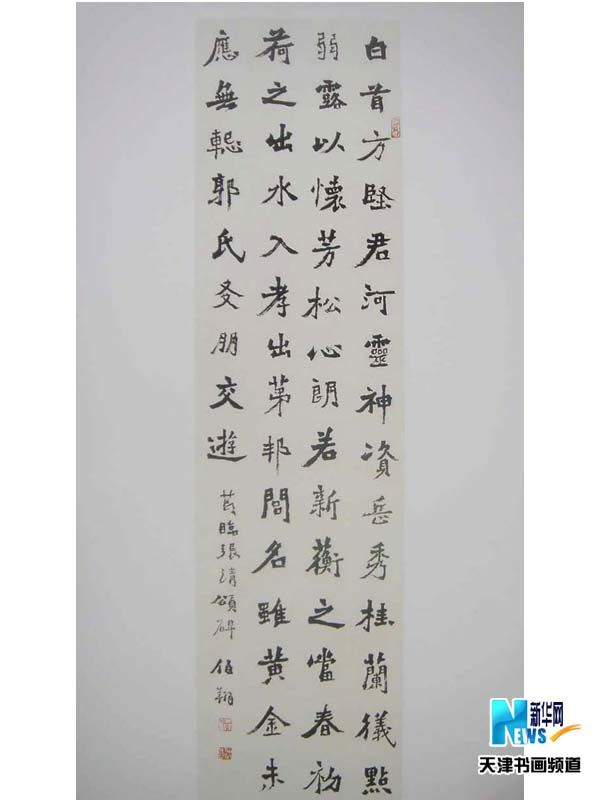 白首方堅君河靈神資岳秀桂蘭儀點
弱露以懷芳松心朗若新蘅之當春初
荷之出水入孝出第邦閭名雖黃金未
應無慙郭氏友朋交遊
節臨張清頌碑 伯翔
新华网
NEWS
天津书画频道